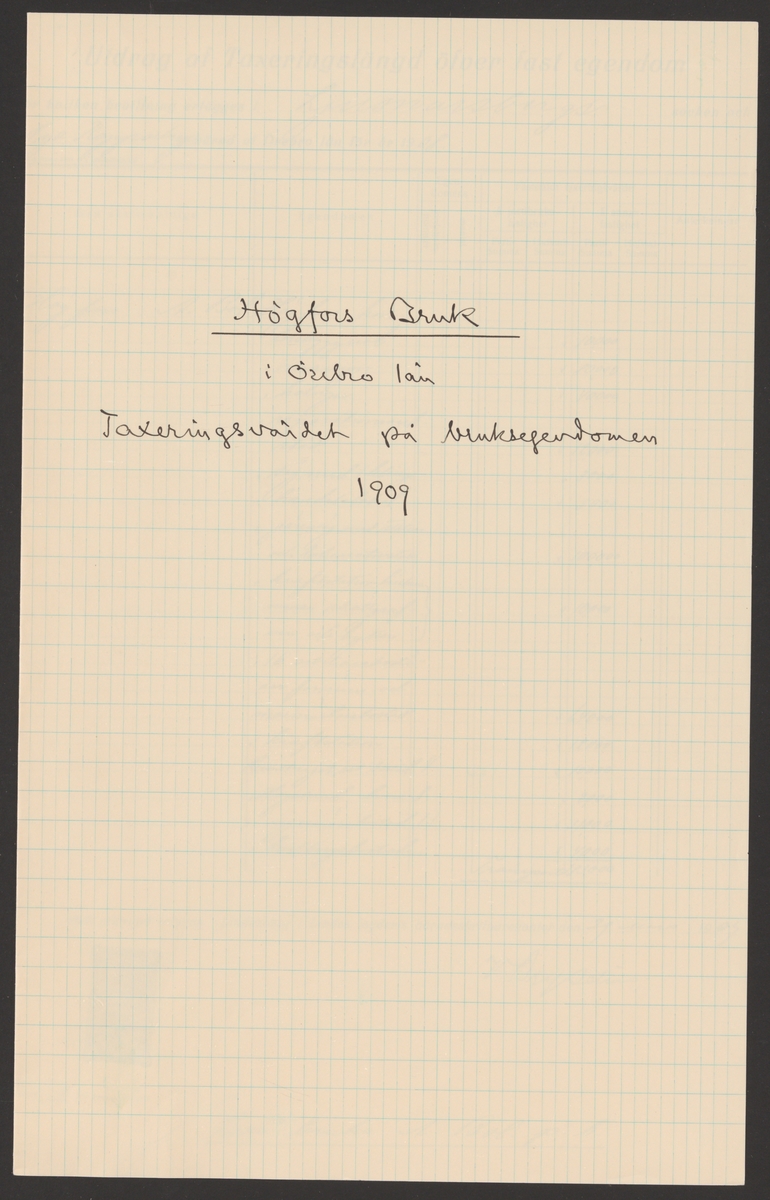 Högfors Bruk
i Örebro län
Taxeringsvärdet på bruksegendomen
1909